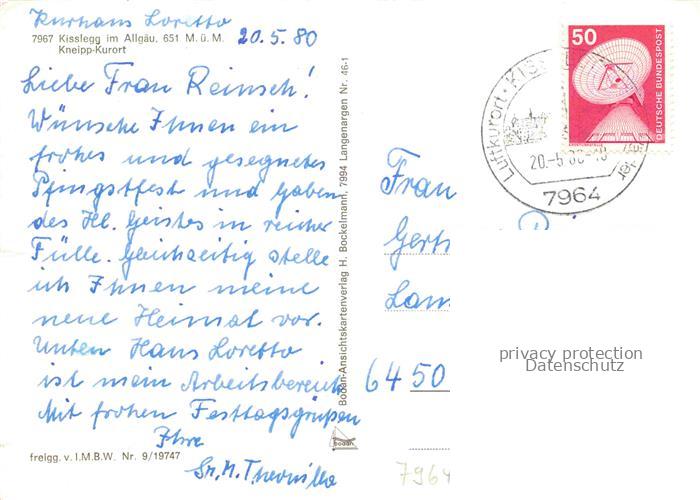 Kurhaus Loretto
7967 Kisslegg im Allgäu, 651 M. ü. M.
Kneipp-Kurort
20.5.80
Liebe Frau Reinsch!
Wünsche Ihnen ein
frohes und gesegnetes
Pfingstfest und Gaben
des Hl. Geistes in reicher
Fülle. Gleichzeitig stelle
ich Ihnen meine
neue Heimat vor.
Unten Haus Loretto
ist mein Arbeitsbereich
Mit frohen Festtagsgrüßen
Ihre
Sr. M.
freigg. v. I.M.B.W. Nr. 9/19747
Bodan-Ansichtskartenverlag H. Bockelmann, 7994 Langenargen Nr. 46-1
bodan
50
DEUTSCHE BUNDESPOST
Luftkurort · KISS
20.-5.80
7964
Frau
Gert
Lan
6450
7964
privacy protection
Datenschutz